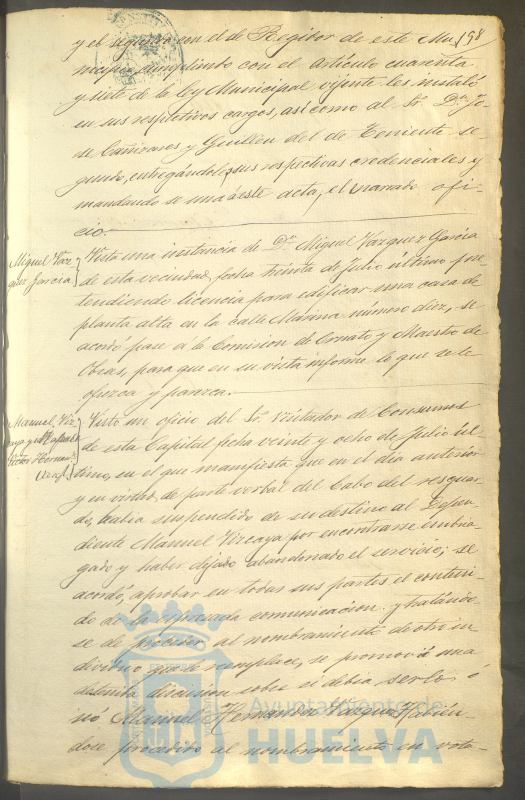 198
y el segundo con el de Regidor de este Mu-
nicipio, cumpliendo con el artículo cuarenta
y siete de la ley Municipal vijente les instaló
en sus respectivos cargos, así como al Sr. Dn. Jo-
se Cañizares y Guillen del de Teniente se-
gundo, entregándoles sus respectivas credenciales y
mandando se una á este acta, el narrado ofi-
cio.
Miguel Vaz-
quez Garcia
Vista una instancia de Dn. Miguel Vazquez Garcia
de esta vecindad, fecha treinta de Julio último pre-
tendiendo licencia para edificar una casa de
planta alta en la calle Marina número diez, se
acordó pase á la Comision de Ornato y Maestro de
Obras, para que en su vista informe lo que se le
ofrezca y parezca.
Manuel Viz-
caya y
Hernan-
Visto un oficio del Sr. Visitador de Consumos
de esta Capital fecha veinte y ocho de Julio úl-
timo, en el que manifiesta que en el dia anterior
y en virtud de parte verbal del Cabo del resguar-
do, habia suspendido de su destino al Depen-
diente Manuel Vizcaya por encontrarse embria-
gado y haber dejado abandonado el servicio; se
acordó, aprobar en todas sus partes el conteni-
do de la espresada comunicacion. y tratándo-
se de proceder al nombramiento de otro in-
dividuo que le reemplace, se promovió una
detenida discusion sobre si debia serlo, ó
nó Manuel Hernandez Vazquez. Habien-
dose procedido al nombramiento en vota-
Ayuntamiento de
HUELVA